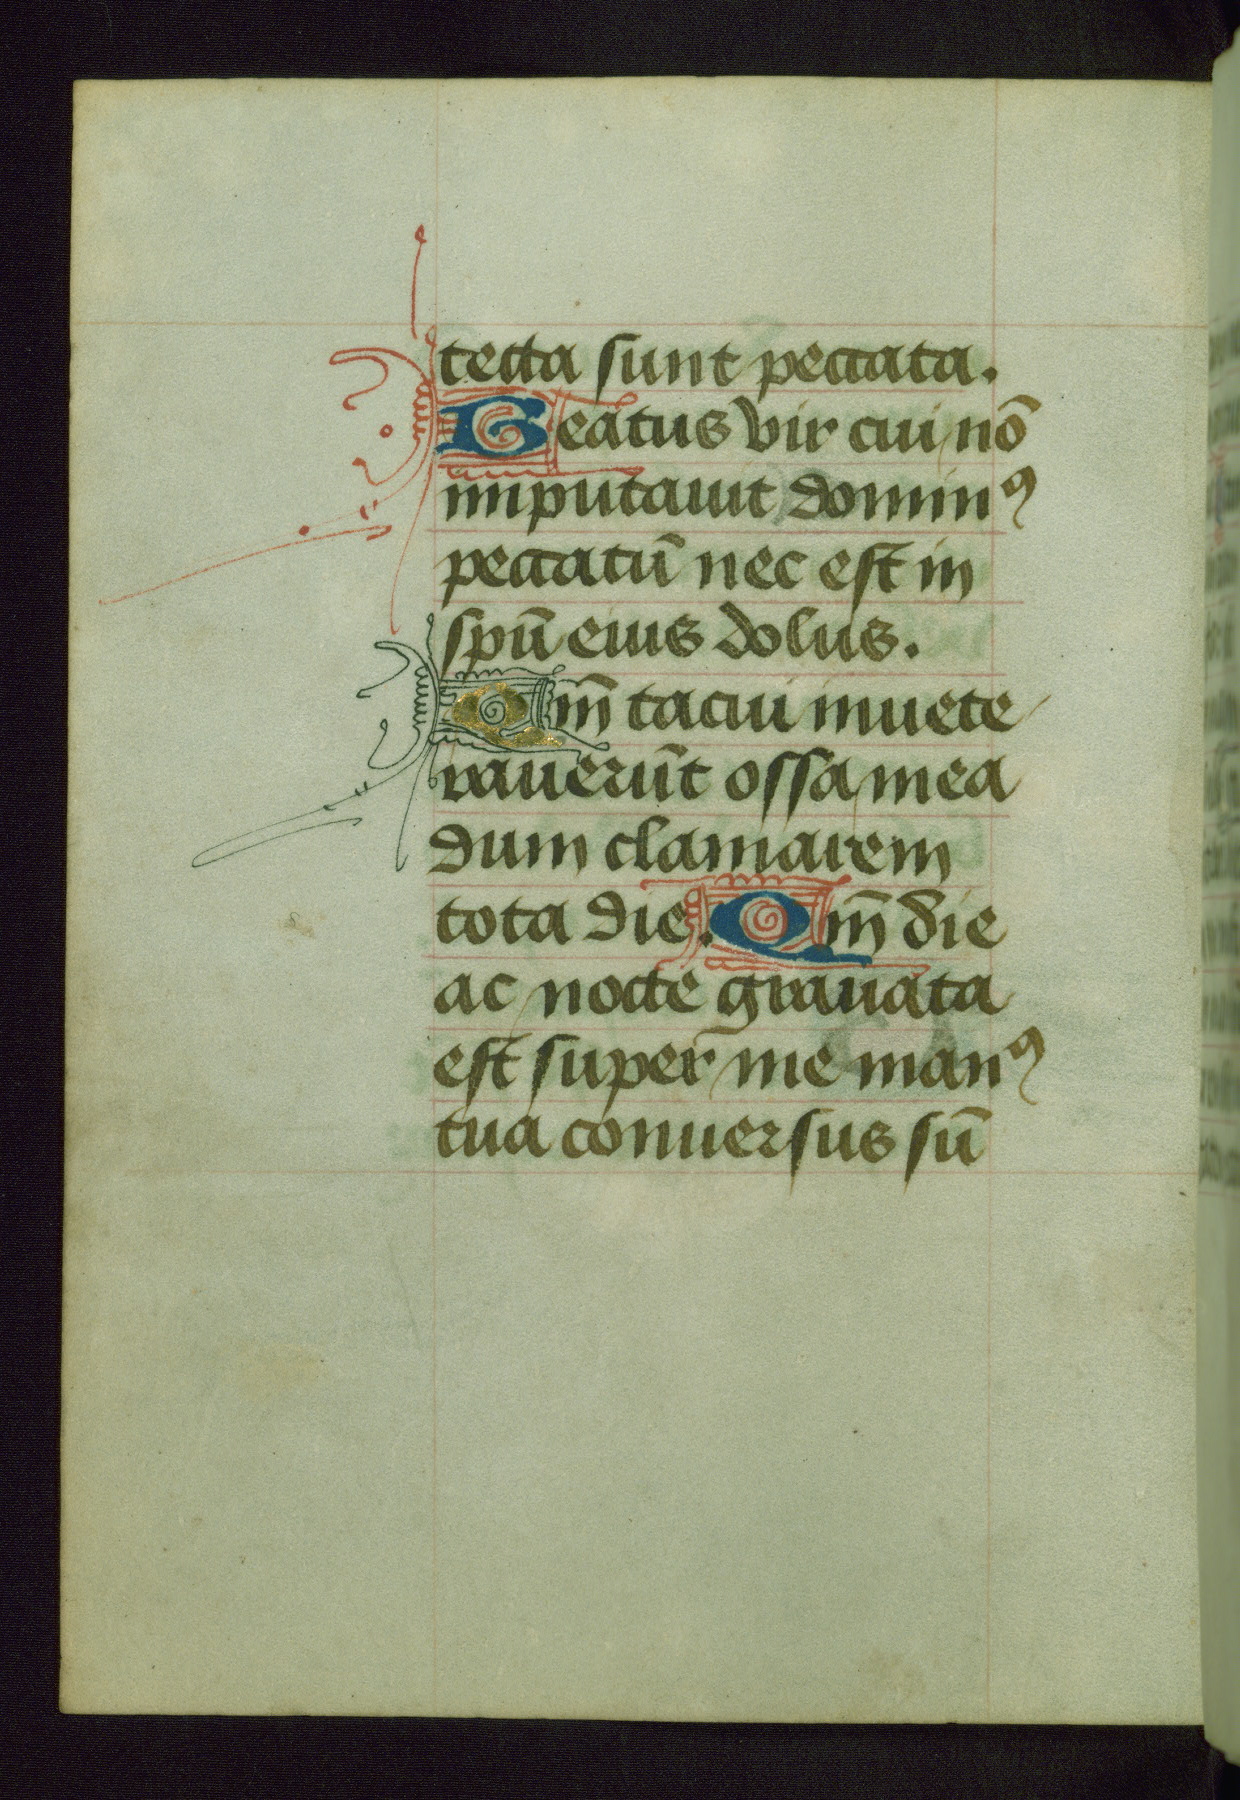 tecta sunt peccata.
Beatus vir cui nō
imputauit dominꝰ
peccatū nec est in
spū eius dolus.
Qm̄ tacui inuete
rauerūt ossa mea
dum clamarem
tota die. Qm̄ die
ac nocte grauata
est super me manꝰ
tua conuersus sū